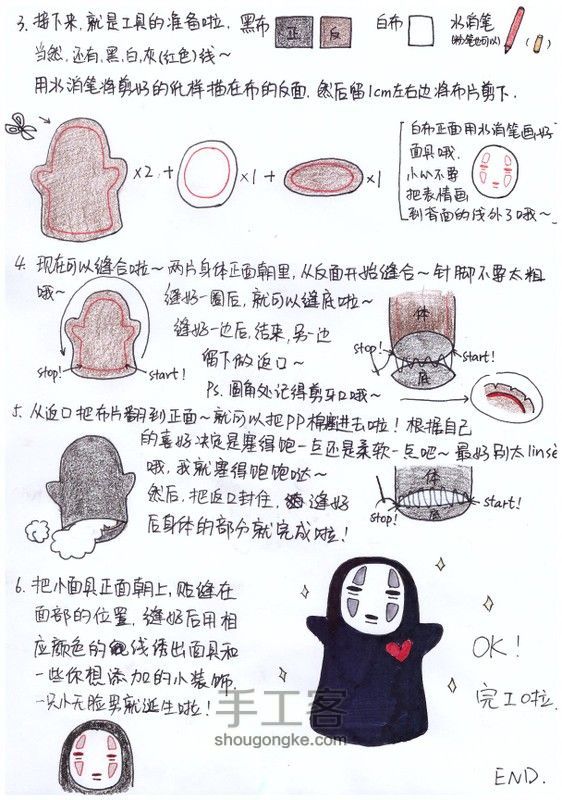 3. 接下来,就是工具的准备啦. 黑布 正 反 白布 水消笔
(粉笔也可以) ( )
当然,还有,黑,白,灰(红色)线~
用水消笔将剪好的纸样描在布的反面.然后留1cm左右边将布片剪下.
×2 + ×1 + ×1
白布正面用水消笔画好
面具哦.
小心不要
把表情画
到背面的线外了哦~
4. 现在可以缝合啦~两片身体正面朝里,从反面开始缝合~针脚不要太粗
哦~
缝好一圈后,就可以缝底啦~
缝好一边后,结束,另一边
留下做返口~
Ps.圆角处记得剪牙口哦~
stop! start!
体
stop! start!
底
5. 从返口把布片翻到正面~就可以把PP棉塞进去啦!根据自己
的喜好决定是塞得饱一点还是柔软一点吧~最好别太
哦,我就塞得饱饱哒~
然后,把返口封住,缝好
后身体的部分就完成啦!
体
stop! start!
底
6. 把小面具正面朝上,贴缝在
面部的位置,缝好后用相
应颜色的线绣出面具和
一些你想添加的小装饰
一只小无脸男就诞生啦!
OK!
完工啦.
END.
手工客
shougongke.com